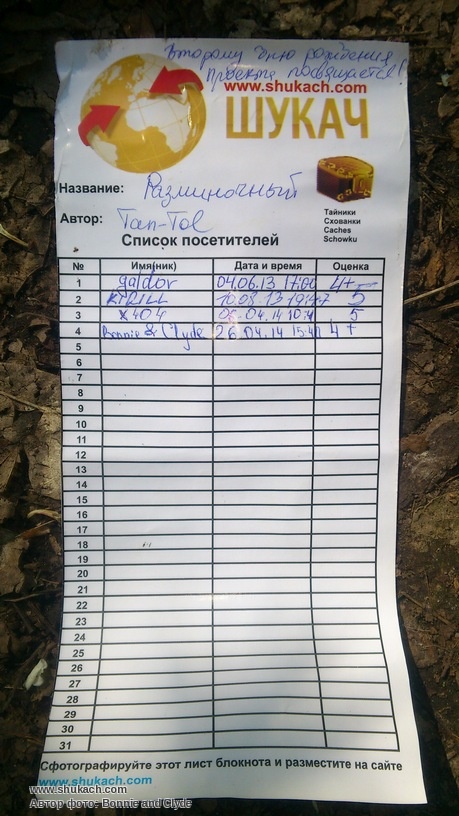 Второму дню рождения
проекта посвящается!
www.shukach.com
ШУКАЧ
Название: Разминочный
Тайники
Схованки
Caches
Schowku
Автор: Tan-Tol
Список посетителей
№ Имя(ник) Дата и время Оценка
1 galdor 04.06.13 17:00 4+
2 KIRILL 10.08.13 19:47 5
3 x404 04.14 5
4 Bonnie & Clyde 26.04.14 4+
5
6
7
8
9
10
11
12
13
14
15
16
17
18
19
20
21
22
23
24
25
26
27
28
29
30
31
Сфотографируйте этот лист блокнота и разместите на сайте
www.shukach.com
www.shukach.com
Автор фото: Bonnie and Clyde